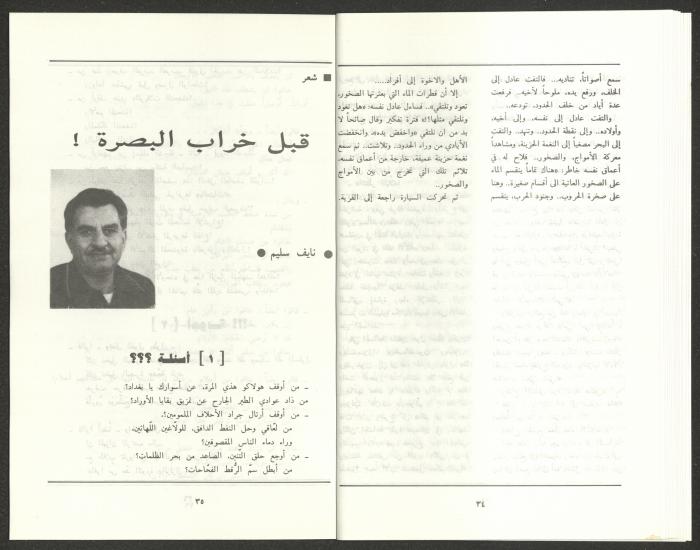 سمع أصواتاً، تناديه.. فالتفت عادل إلى
الخلف، ورفع يده، ملوحاً لأخيه.. فرفعت
عدة أياد من خلف الحدود، تودعه..
والتفت عادل إلى نفسه. وإلى أخيه،
وأولاده.. وإلى نقطة الحدود.. وتنهد.. والتفت
إلى البحر مصغياً إلى النغمة الحزينة، ومشاهداً
معركة الأمواج، والصخور.. فلاح له في
أعماق نفسه خاطر: «هناك تماماً ينقسم الماء
على الصخور العاتية الى أقسام صغيرة.. وهنا
على صخرة الحروب.. وجنود الحرب، ينقسم
الأهل والاخوة إلى أفراد.....
إلا أن قطرات الماء التي بعثرتها الصخور،
تعود وتلتقي».. فساءل عادل نفسه: «هل نعود
ونلتقي مثلها؟!» فترة تفكير وقال صائحاً لا
بد من ان نلتقي «واخفض يده»، وانخفضت
الأيادي من وراء الحدود.. وتلاشت.. ثم سمع
نغمة حزينة عميقة، خارجة من أعماق نفسه،
تلائم تلك التي تخرج من بين الأمواج
والصخور..
ثم تحركت السيارة راجعة إلى القرية.
٣٤
■ شعر
قبل خراب البصرة !
● نايف سليم ●
[ ١ ] أسئلة ؟؟؟
ـ من أوقف هولاكو هذي المرة، عن أسوارك يا بغداد؟.
من ذاد عوادي الطير الجارح عن تمزيق بقايا الأوراد؟.
ـ من أوقف أرتال جراد الأحلاف الملمومين؟.
من لعّاقي وحل النفط الدافق، للولاّغين اللّهاثين.
وراء دماء الناس المقصوفين؟
ـ من أوجع حلق التّنين، الصاعد من بحر الظلمات؟
من أبطل سمّ الرُّقط الفحّاحات؟
٣٥